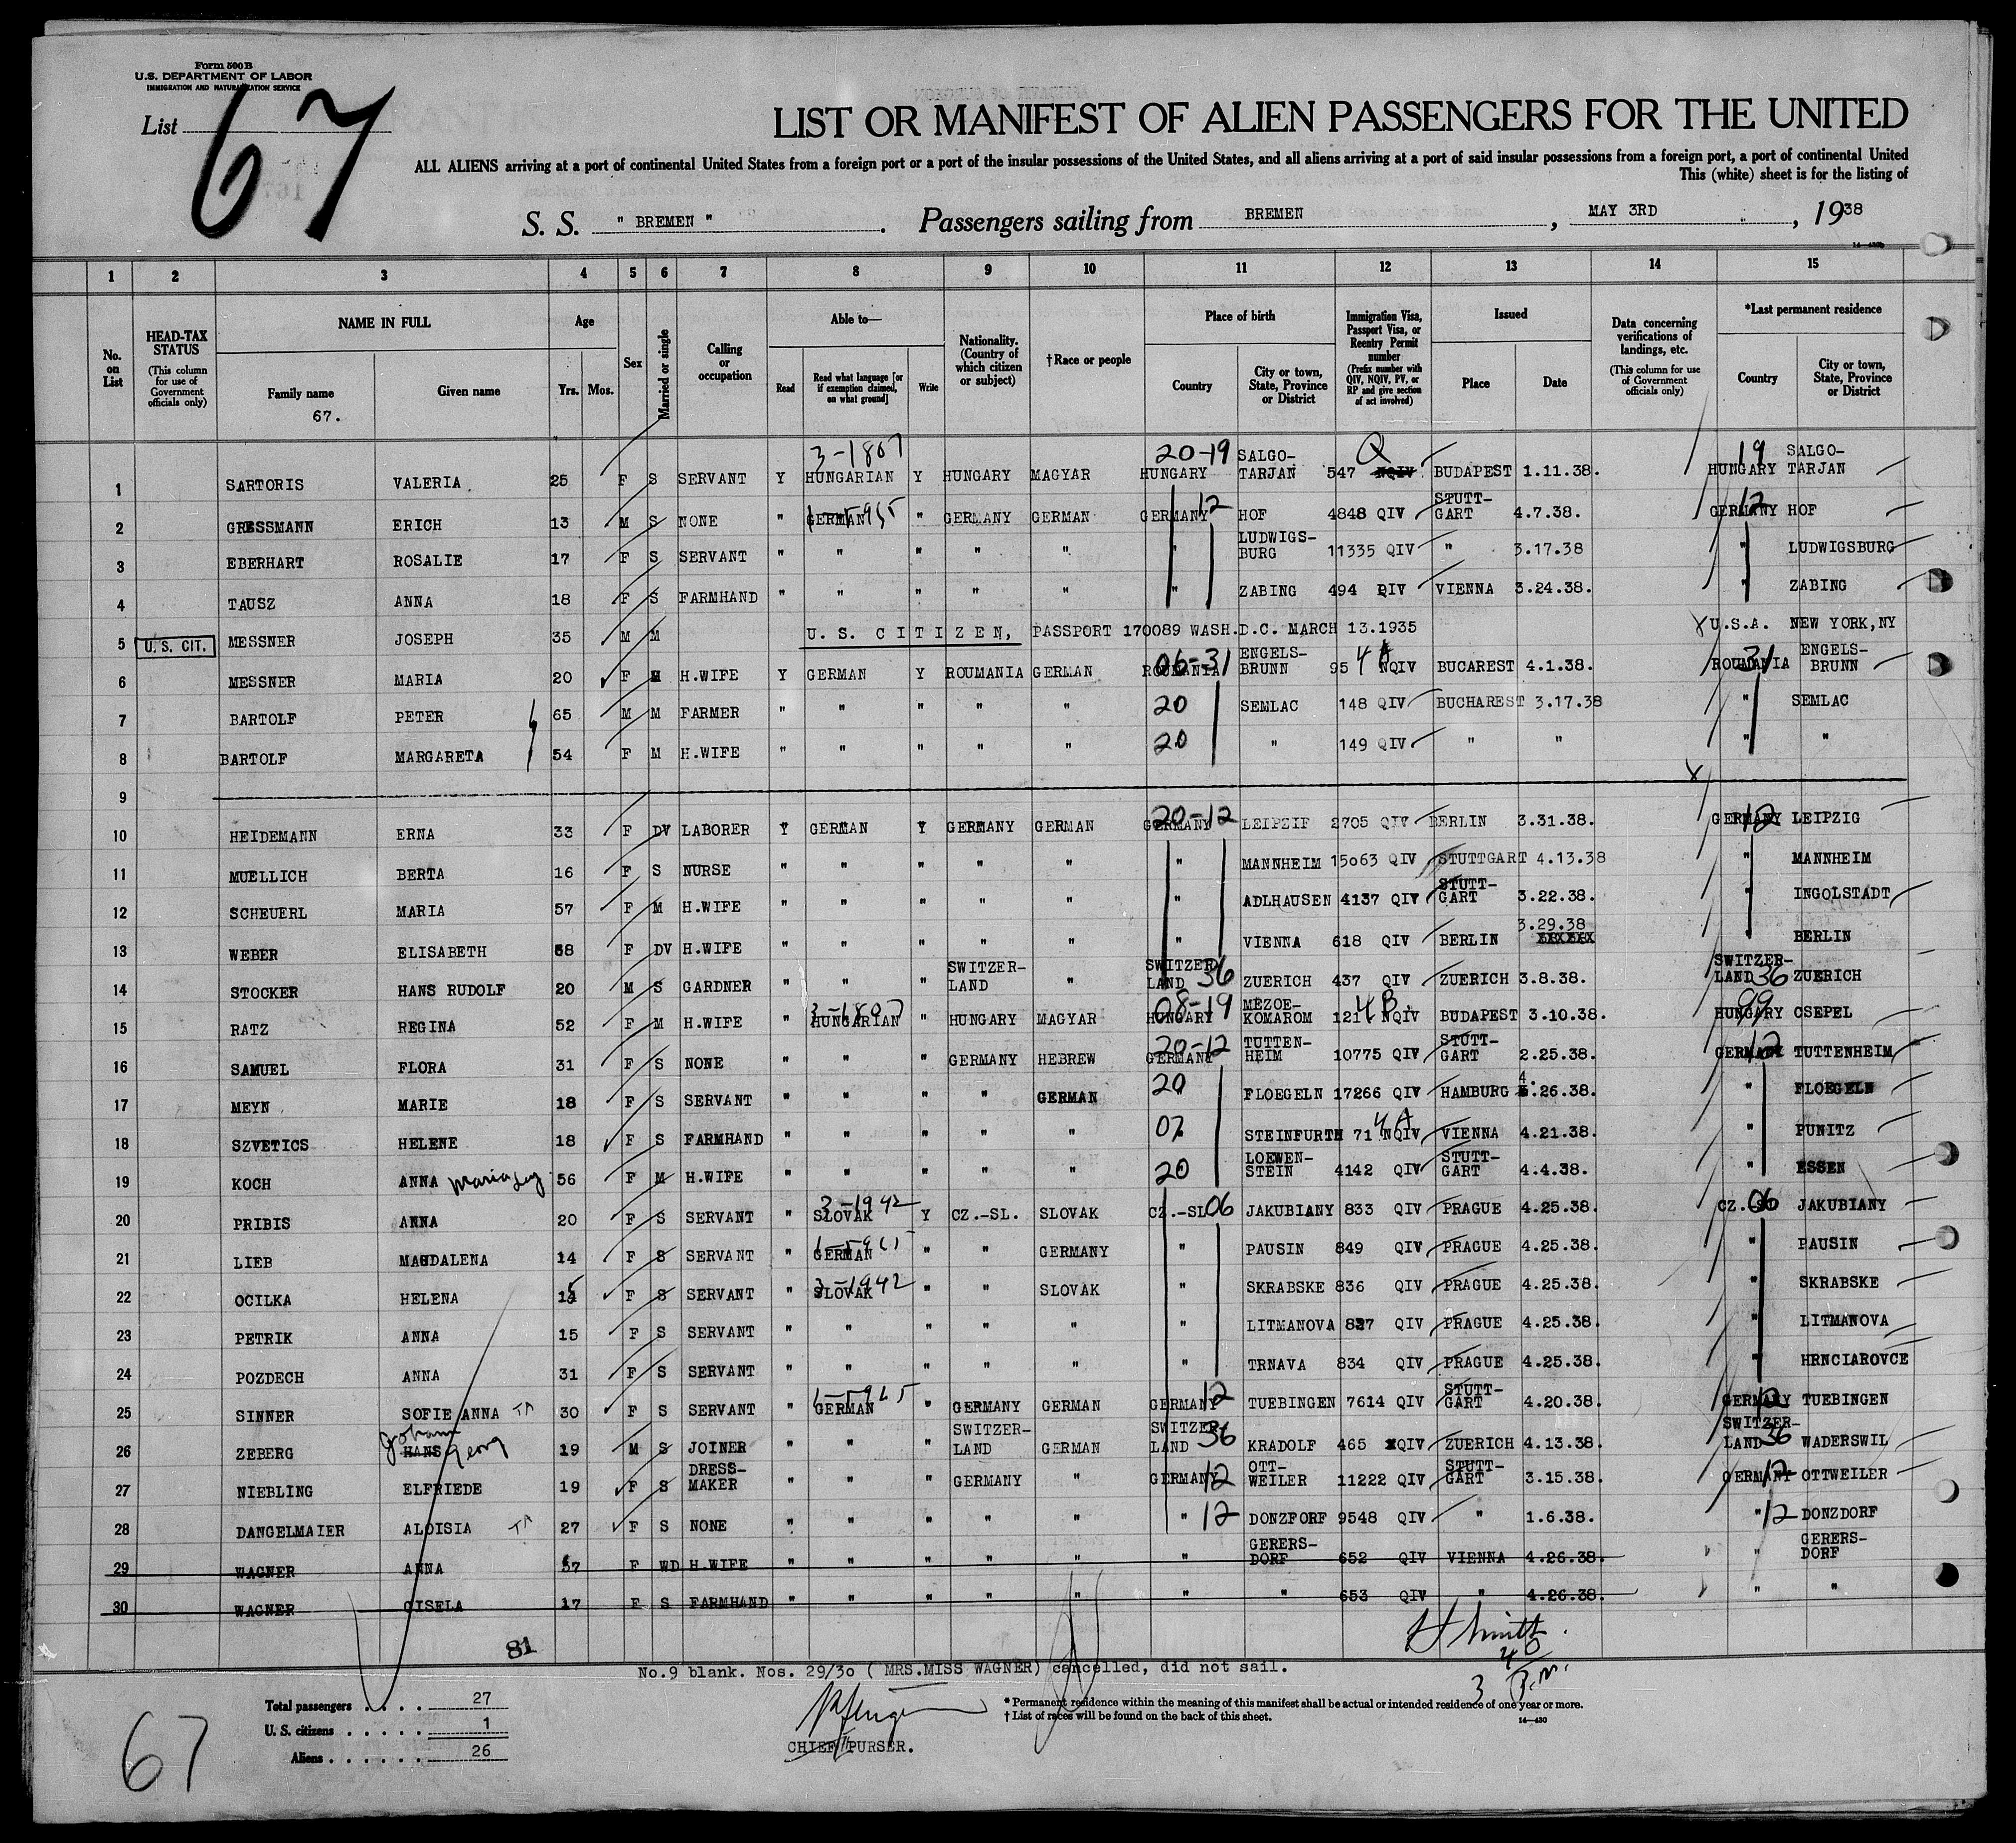 Form 500B
U.S. DEPARTMENT OF LABOR
IMMIGRATION AND NATURALIZATION SERVICE
List 67
LIST OR MANIFEST OF ALIEN PASSENGERS FOR THE UNITED
ALL ALIENS arriving at a port of continental United States from a foreign port or a port of the insular possessions of the United States, and all aliens arriving at a port of said insular possessions from a foreign port, a port of continental United
This (white) sheet is for the listing of
S. S. " BREMEN " . Passengers sailing from BREMEN , MAY 3RD , 1938
1 2 3 4 5 6 7 8 9 10 11 12 13 14 15
No. on List
HEAD-TAX STATUS (This column for use of Government officials only)
NAME IN FULL Family name Given name
67.
Age Yrs. Mos.
Sex
Married or single
Calling or occupation
Able to— Read Read what language [or if exemption claimed, on what ground] Write
Nationality. (Country of which citizen or subject)
†Race or people
Place of birth Country City or town, State, Province or District
Immigration Visa, Passport Visa, or Reentry Permit number (Prefix number with QIV, NQIV, PV, or RP and give section of act involved)
Issued Place Date
Data concerning verifications of landings, etc. (This column for use of Government officials only)
*Last permanent residence Country City or town, State, Province or District
1 SARTORIS VALERIA 25 F S SERVANT Y HUNGARIAN 3-1807 Y HUNGARY MAGYAR HUNGARY 20-19 SALGO-TARJAN 547 NQIV Q BUDAPEST 1.11.38. HUNGARY 19 SALGO-TARJAN
2 GRESSMANN ERICH 13 M S NONE " GERMAN " GERMANY GERMAN GERMANY 12 HOF 4848 QIV STUTT-GART 4.7.38. GERMANY 12 HOF
3 EBERHART ROSALIE 17 F S SERVANT " " " " " " LUDWIGS-BURG 11335 QIV " 3.17.38 " LUDWIGSBURG
4 TAUSZ ANNA 18 F S FARMHAND " " " " " " ZABING 494 QIV VIENNA 3.24.38. " ZABING
5 U. S. CIT. MESSNER JOSEPH 35 M M U. S. CITIZEN, PASSPORT 170089 WASH.D.C. MARCH 13.1935 U.S.A. NEW YORK,NY
6 MESSNER MARIA 20 F M H.WIFE Y GERMAN Y ROUMANIA GERMAN ROUMANIA 06-31 ENGELS-BRUNN 95 4A NQIV BUCAREST 4.1.38. ROUMANIA 31 ENGELS-BRUNN
7 BARTOLF PETER 65 M M FARMER " " " " " 20 SEMLAC 148 QIV BUCHAREST 3.17.38 " SEMLAC
8 BARTOLF MARGARETA 54 F M H.WIFE " " " " " 20 " 149 QIV " " " "
9
10 HEIDEMANN ERNA 33 F DV LABORER Y GERMAN Y GERMANY GERMAN GERMANY 20-12 LEIPZIF 2705 QIV BERLIN 3.31.38. GERMANY 12 LEIPZIG
11 MUELLICH BERTA 16 F S NURSE " " " " " " MANNHEIM 15063 QIV STUTTGART 4.13.38 " MANNHEIM
12 SCHEUERL MARIA 57 F M H.WIFE " " " " " " ADLHAUSEN 4137 QIV STUTT-GART 3.22.38. " INGOLSTADT
13 WEBER ELISABETH 58 F DV H.WIFE " " " " " " VIENNA 618 QIV BERLIN 3.29.38 " BERLIN
14 STOCKER HANS RUDOLF 20 M S GARDNER " " " SWITZER-LAND " SWITZER-LAND 36 ZUERICH 437 QIV ZUERICH 3.8.38. SWITZER-LAND 36 ZUERICH
15 RATZ REGINA 52 F M H.WIFE " HUNGARIAN 3-1807 " HUNGARY MAGYAR HUNGARY 08-19 MEZOE-KOMAROM 121 4B NQIV BUDAPEST 3.10.38. HUNGARY CSEPEL
16 SAMUEL FLORA 31 F S NONE " " " GERMANY HEBREW GERMANY 20-12 TUTTEN-HEIM 10775 QIV STUTT-GART 2.25.38. GERMANY 12 TUTTENHEIM
17 MEYN MARIE 18 F S SERVANT " " " " GERMAN 20 FLOEGELN 17266 QIV HAMBURG 4.26.38. " FLOEGELN
18 SZVETICS HELENE 18 F S FARMHAND " " " " " 07 STEINFURTH 71 4A NQIV VIENNA 4.21.38. " PUNITZ
19 KOCH ANNA Maria 56 F M H.WIFE " " " " " 20 LOEWEN-STEIN 4142 QIV STUTT-GART 4.4.38. " ESSEN
20 PRIBIS ANNA 20 F S SERVANT " SLOVAK 3-1942 Y CZ.-SL. SLOVAK CZ.-SL 06 JAKUBIANY 833 QIV PRAGUE 4.25.38. CZ.-SL 06 JAKUBIANY
21 LIEB MAGDALENA 14 F S SERVANT " GERMAN " " GERMANY " PAUSIN 849 QIV PRAGUE 4.25.38. " PAUSIN
22 OCILKA HELENA 15 F S SERVANT " SLOVAK 3-1942 " " SLOVAK " SKRABSKE 836 QIV PRAGUE 4.25.38. " SKRABSKE
23 PETRIK ANNA 15 F S SERVANT " " " " " " LITMANOVA 837 QIV PRAGUE 4.25.38. " LITMANOVA
24 POZDECH ANNA 31 F S SERVANT " " " " " " TRNAVA 834 QIV PRAGUE 4.25.38. " HRNCIAROVCE
25 SINNER SOFIE ANNA 30 F S SERVANT " GERMAN " GERMANY GERMAN GERMANY 12 TUEBINGEN 7614 QIV STUTT-GART 4.20.38. GERMANY 12 TUEBINGEN
26 ZEBERG HANS Johann Georg 19 M S JOINER " " " SWITZER-LAND GERMAN SWITZER-LAND 36 KRADOLF 465 QIV ZUERICH 4.13.38. SWITZER-LAND 36 WADERSWIL
27 NIEBLING ELFRIEDE 19 F S DRESS-MAKER " " " GERMANY " GERMANY 12 OTT-WEILER 11222 QIV STUTT-GART 3.15.38. GERMANY 12 OTTWEILER
28 DANGELMAIER ALOISIA 27 F S NONE " " " " " " 12 DONZFORF 9548 QIV " 1.6.38. " 12 DONZDORF
29 WAGNER ANNA 57 F WD H.WIFE " " " " " " GERERS-DORF 652 QIV VIENNA 4.26.38. " GERERS-DORF
30 WAGNER GISELA 17 F S FARMHAND " " " " " " " 653 QIV " 4.26.38. " "
81
No.9 blank. Nos. 29/30 ( MRS.MISS WAGNER) cancelled, did not sail.
Total passengers . . . . 27
U. S. citizens . . . . . 1
Aliens . . . . . . 26
67
CHIEF PURSER.
* Permanent residence within the meaning of this manifest shall be actual or intended residence of one year or more.
† List of races will be found on the back of this sheet.
14—430